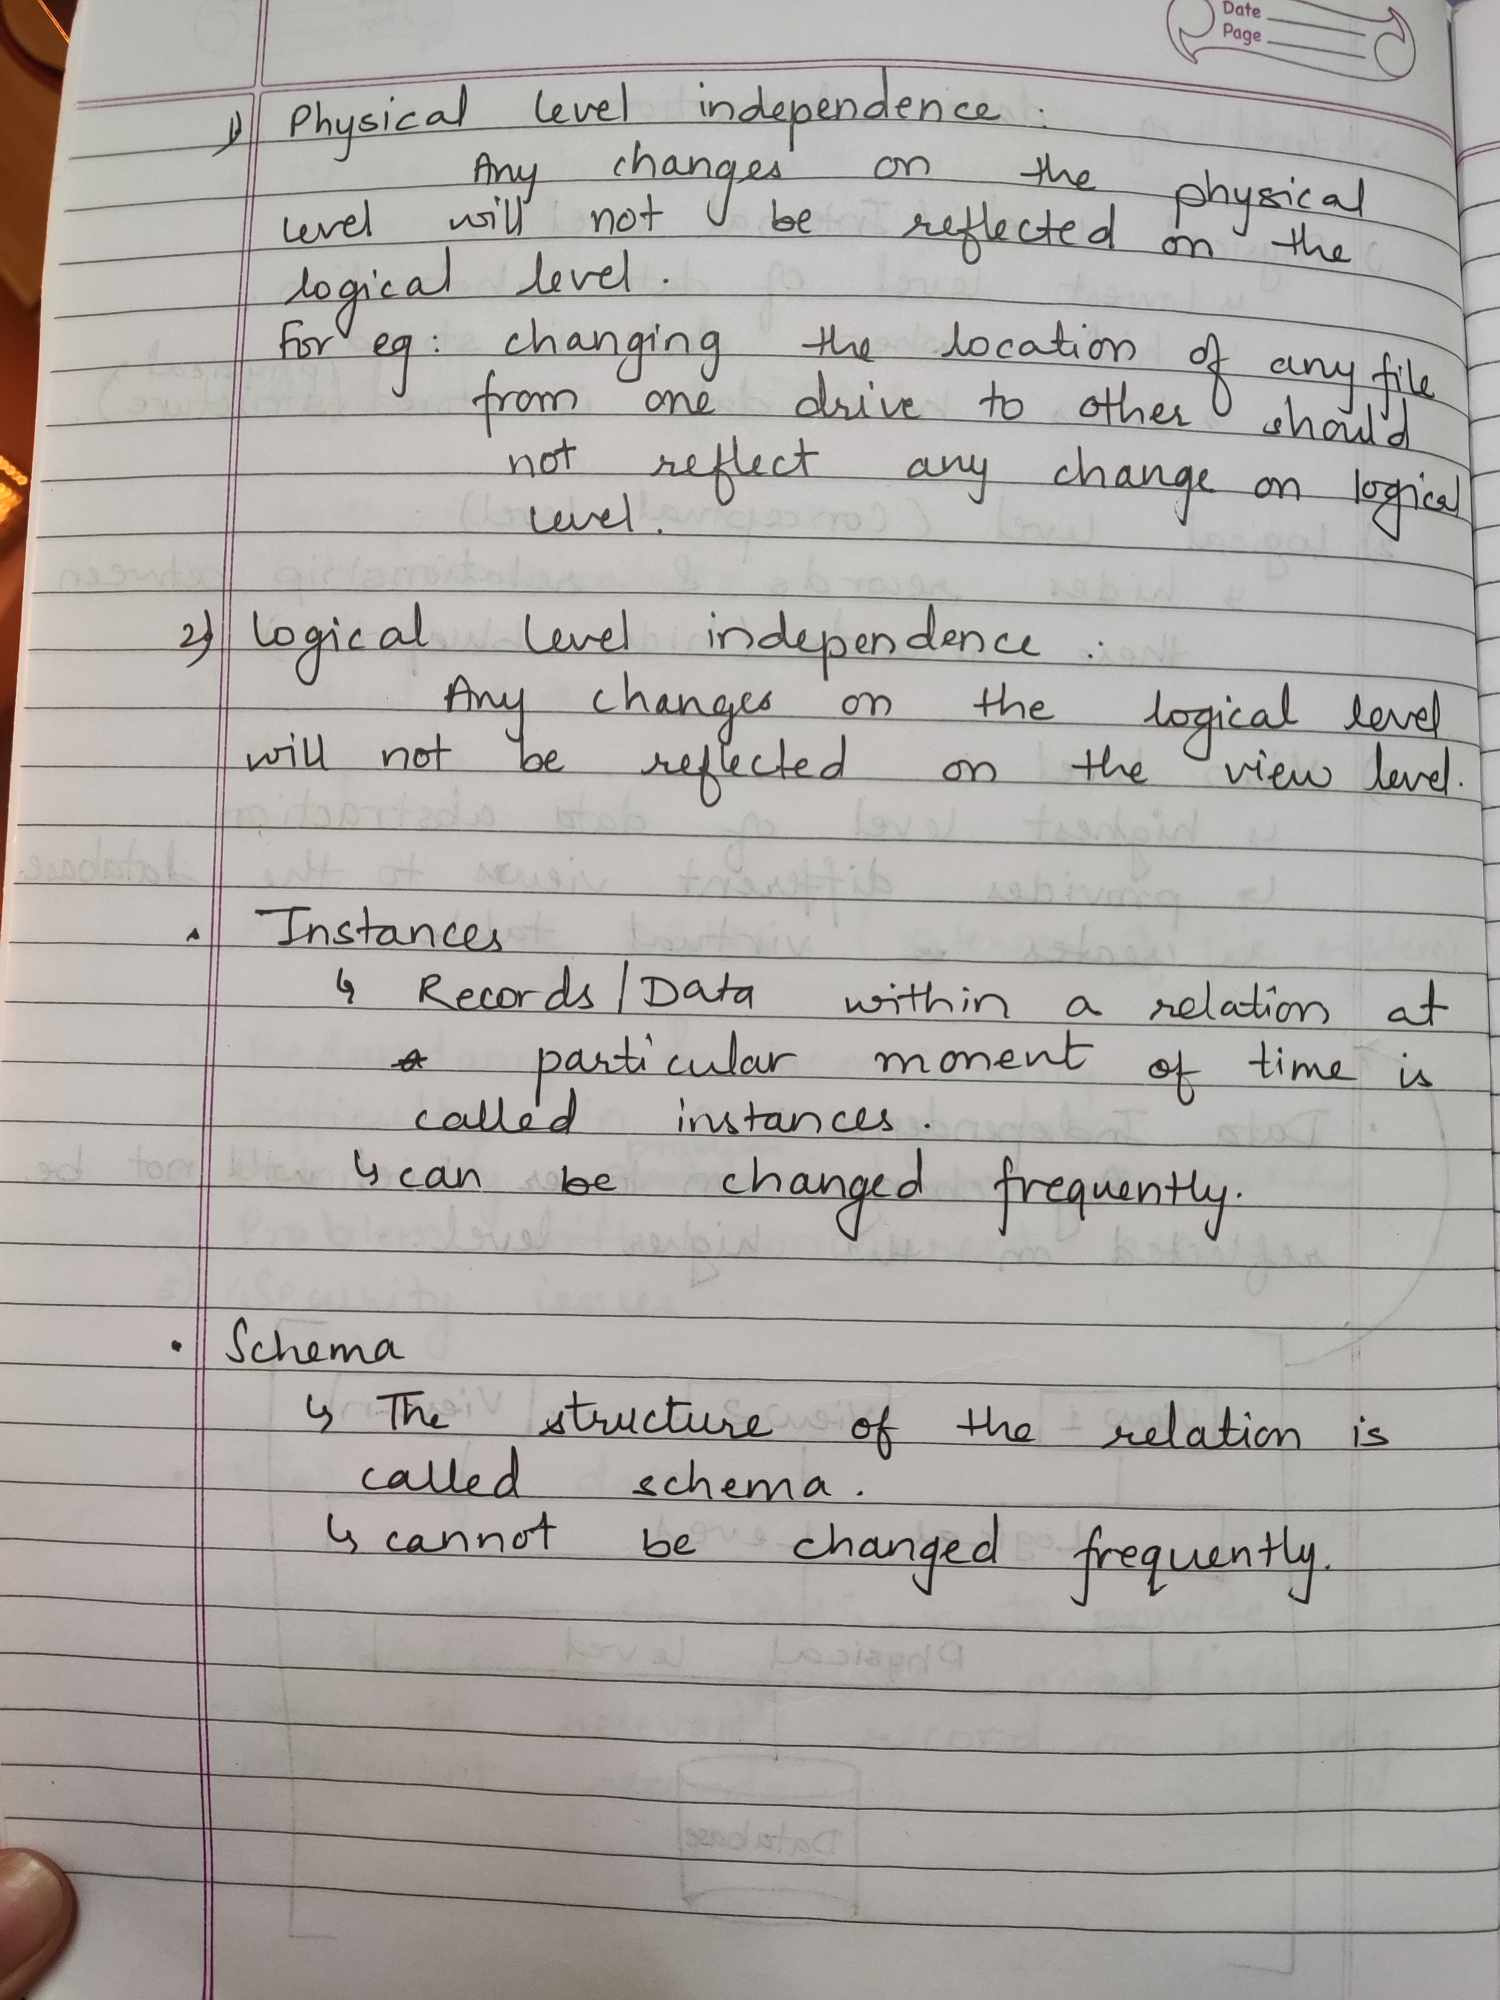 Date
Page
1) Physical level independence :
Any changes on the physical
level will not be reflected on the
logical level.
For eg: changing the location of any file
from one drive to other should
not reflect any change on logical
level.
2) Logical level independence :
Any changes on the logical level
will not be reflected on the view level.
• Instances
↳ Records/Data within a relation at
a particular moment of time is
called instances.
↳ can be changed frequently.
• Schema
↳ The structure of the relation is
called schema.
↳ cannot be changed frequently.